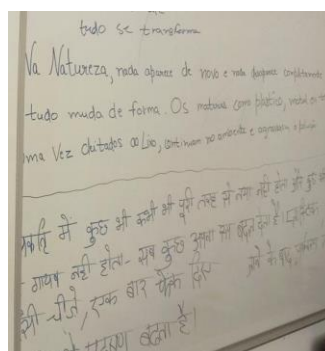 tudo se transforma
Na Natureza, nada aparece de novo e nada desaparece completamente
tudo muda de forma. Os materiais como plástico, metal ou
uma Vez deitados ao Lixo, continuam no ambiente e agravam a poluição
प्रकृति में कुछ भी कभी भी पूरी तरह से नया नहीं होता और कुछ भी
गायब नहीं होता - सब कुछ अपना रूप बदल देता है।
चीजें, एक बार फेंक दिए जाने के बाद
प्रदूषण बढ़ता है।